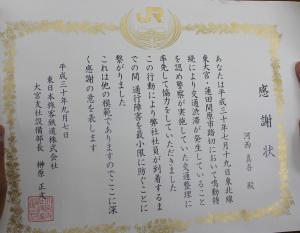 JR
感謝状
河西 真吾 殿
あなたは平成三十年七月十九日東北線
東大宮・蓮田間原市踏切において鳴動持
続により交通渋滞が発生していること
を認め警察が実施していた交通整理に
率先して協力をしていただきました
この行動により弊社社員が到着するま
での間 通行障害を最小限に防ぐことに
繋がりました
これは他の模範でありますのでここに深
く感謝の意を表します
平成三十年九月七日
東日本旅客鉄道株式会社
大宮支社設備部長 榊原 正